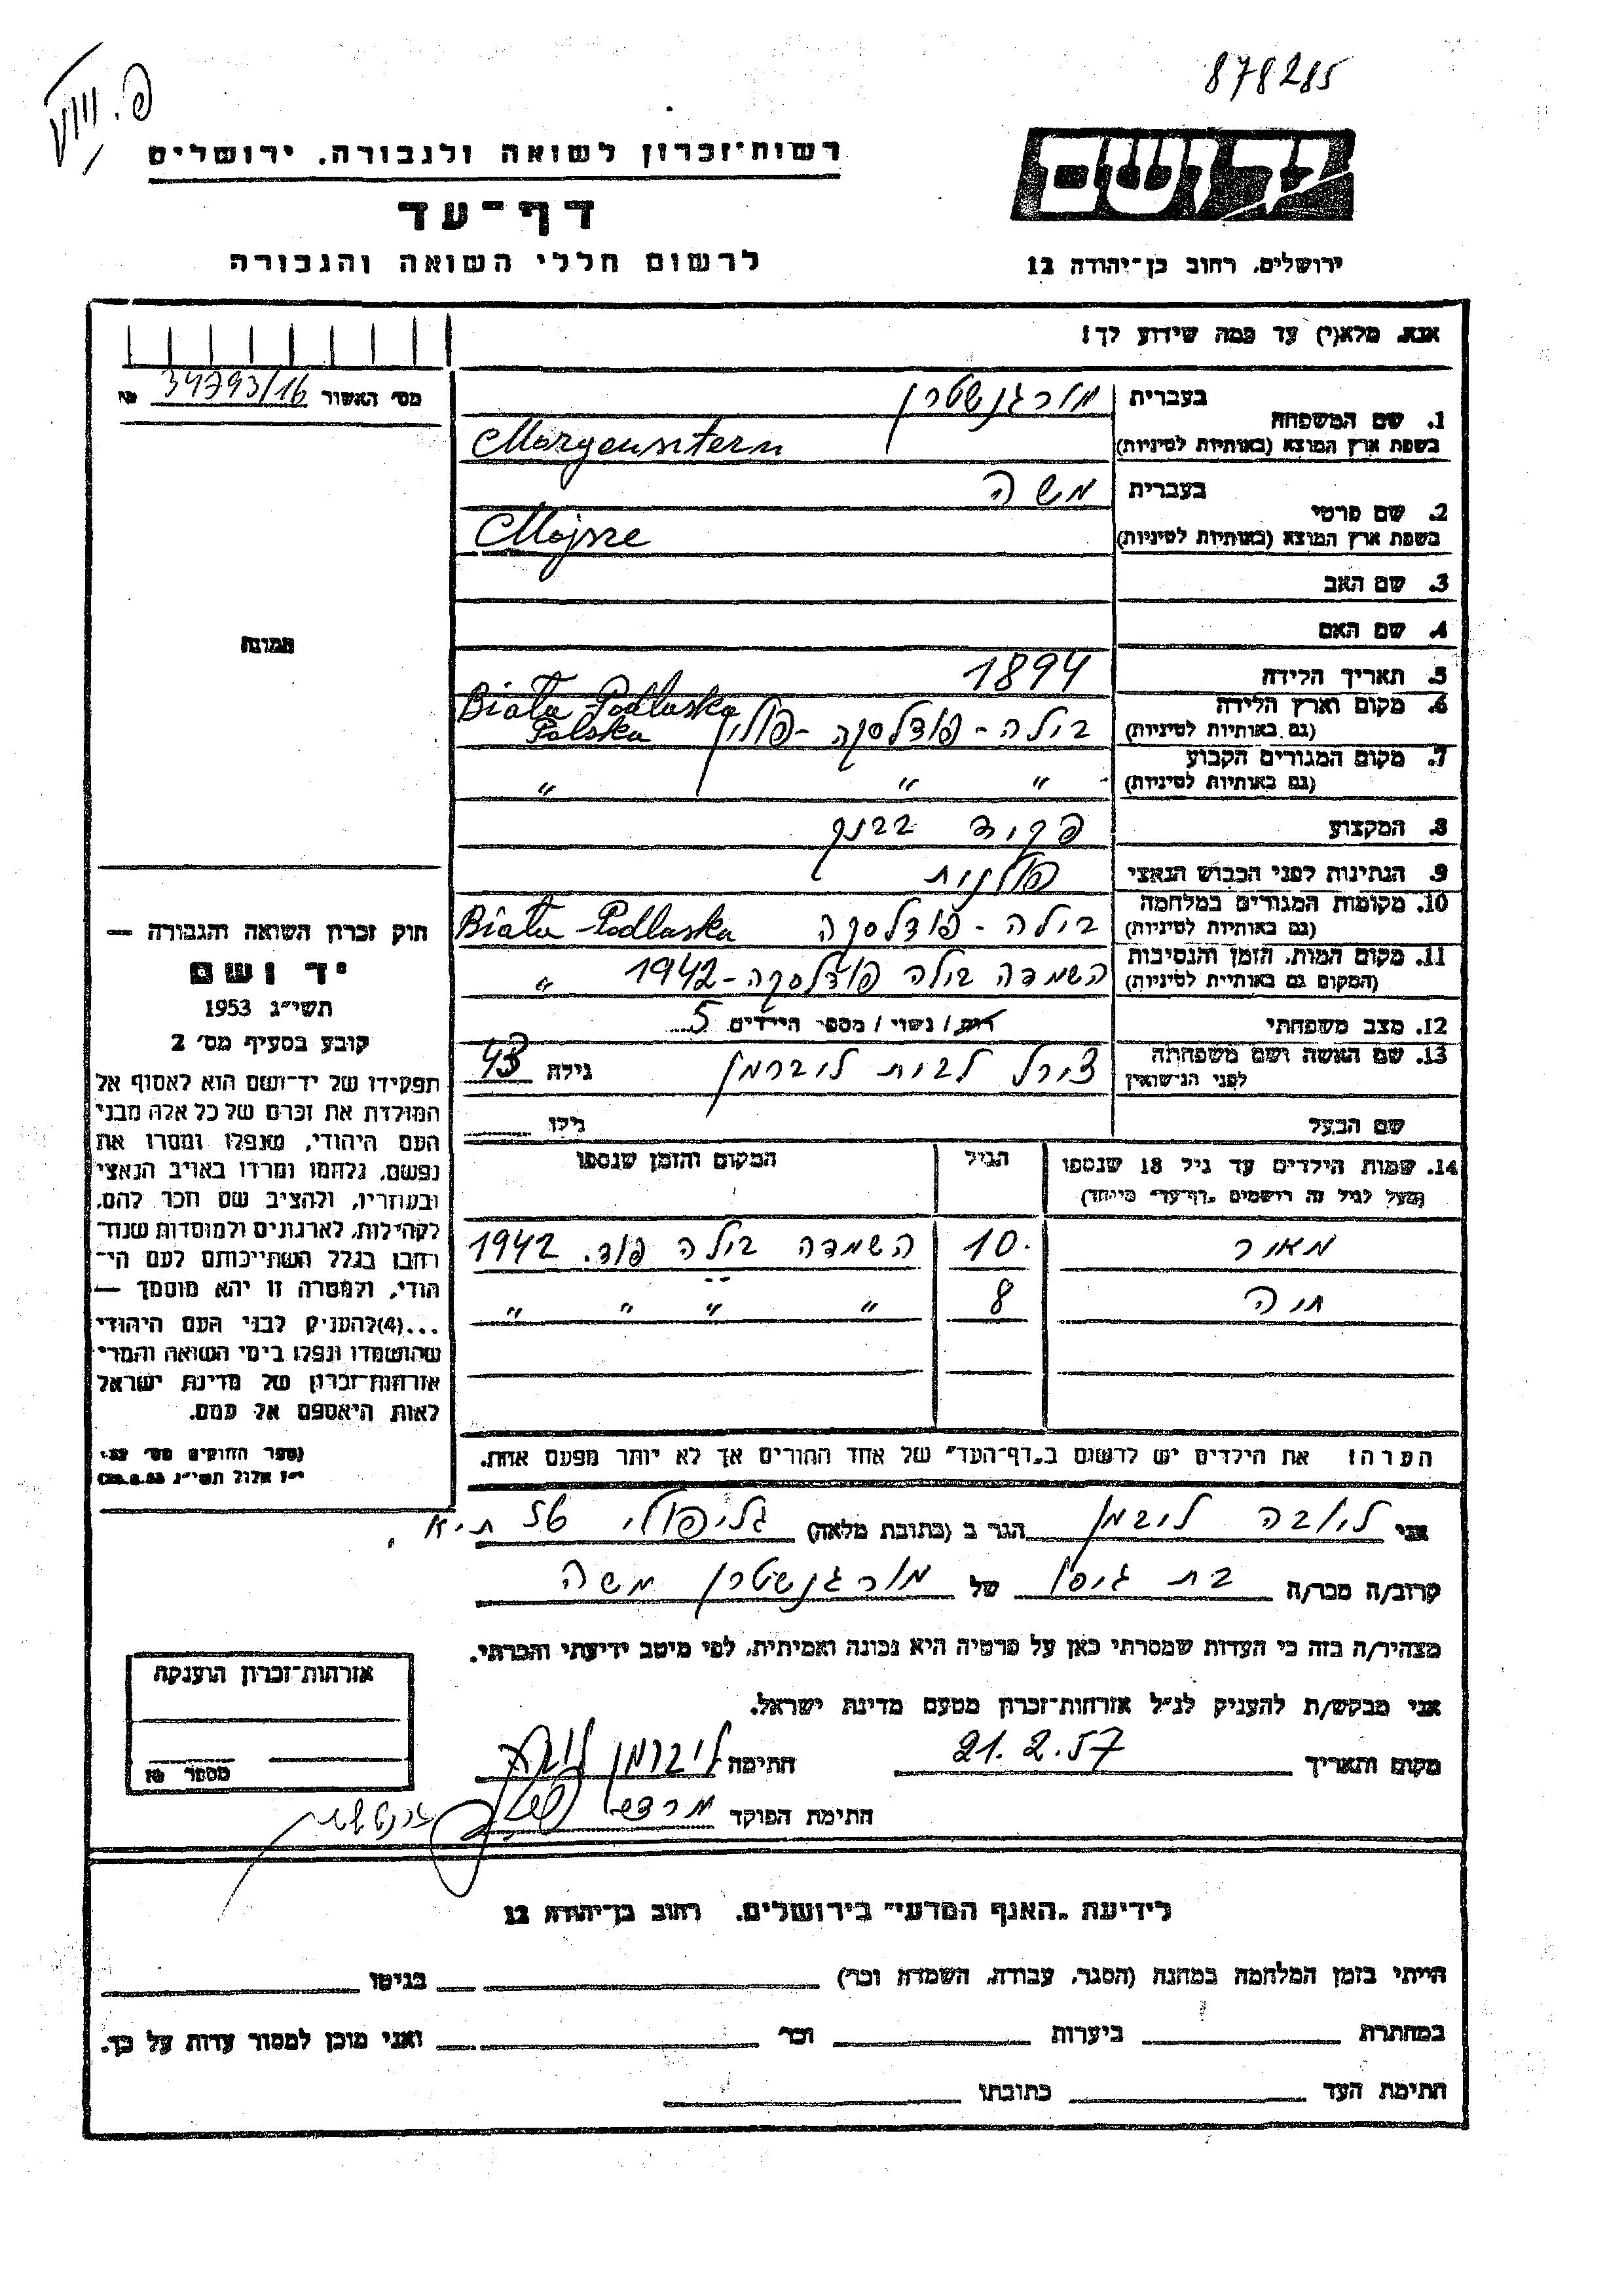 878285
רשות־זכרון לשואה ולגבורה. ירושלים
דף־עד
לרשום חללי השואה והגבורה
יד ושם
ירושלים, רחוב בן־יהודה 12
אנא, מלא(י) עד כמה שידוע לך!
מס׳ האשור 34793/16 №
1. שם המשפחה
בעברית מורגנשטרן
בשפת ארץ המוצא (באותיות לטיניות) Morgensztern
2. שם פרטי
בעברית משה
בשפת ארץ המוצא (באותיות לטיניות) Mojsze
3. שם האב
4. שם האם
תמונה
5. תאריך הלידה 1894
6. מקום וארץ הלידה
(גם באותיות לטיניות) בילה - פודלסקה - פולין Biała Podlaska Polska
7. מקום המגורים הקבוע
(גם באותיות לטיניות) " " "
8. המקצוע פקיד בבנק
9. הנתינות לפני הכבוש הנאצי פולנית
10. מקומות המגורים במלחמה
(גם באותיות לטיניות) בילה - פודלסקה Biała - Podlaska
11. מקום המות, הזמן והנסיבות
(המקום גם באותיות לטיניות) השמדה בילה פודלסקה - 1942 "
12. מצב משפחתי רוק / נשוי / מספר הילדים 5
13. שם האשה ושם משפחתה
לפני הנישואין צירל לבית ליברמן גילה 43
שם הבעל גילו
14. שמות הילדים עד גיל 18 שנספו הגיל המקום והזמן שנספו
(מעל לגיל זה רושמים "דף־עד" מיוחד)
מאיר 10 השמדה בילה פוד. 1942
חיה 8 " " " "
הערה! את הילדים יש לרשום ב"דף־העד" של אחד ההורים אך לא יותר מפעם אחת.
חוק זכרון השואה והגבורה —
יד ושם
תשי״ג 1953
קובע בסעיף מס׳ 2
תפקידו של יד־ושם הוא לאסוף אל
המולדת את זכרם של כל אלה מבני
העם היהודי, שנפלו ומסרו את
נפשם, נלחמו ומרדו באויב הנאצי
ובעוזריו, ולהציב שם וזכר להם,
לקהילות, לארגונים ולמוסדות שנח־
רבו בגלל השתייכותם לעם הי־
הודי, ולמטרה זו יהא מוסמך —
...(4) להעניק לבני העם היהודי
שהושמדו ונפלו בימי השואה והמרי
אזרחות־זכרון של מדינת ישראל
לאות היאספם אל עמם.
(ספר החוקים מס׳ 132,
י״ז אלול תשי״ג 28.8.53)
אני ליובה ליברמן הגר ב (כתובת מלאה) גליפולי 52 ת״א.
קרוב/ה מכר/ה בת גיסו של מורגנשטרן משה
מצהיר/ה בזה כי העדות שמסרתי כאן על פרטיה היא נכונה ואמיתית, לפי מיטב ידיעתי והכרתי.
אני מבקש/ת להעניק לנ״ל אזרחות־זכרון מטעם מדינת ישראל.
מקום ותאריך 21.2.57 חתימה ליברמן ליובה
חתימת הפוקד
אזרחות־זכרון הוענקה
מספר №
לידיעת "האגף המדעי" בירושלים. רחוב בן־יהודה 12
הייתי בזמן המלחמה במחנה (הסגר, עבודה, השמדה וכר׳) בגיטו
במחתרת ביערות וכר׳ ואני מוכן למסור עדות על כך.
חתימת העד כתובתו